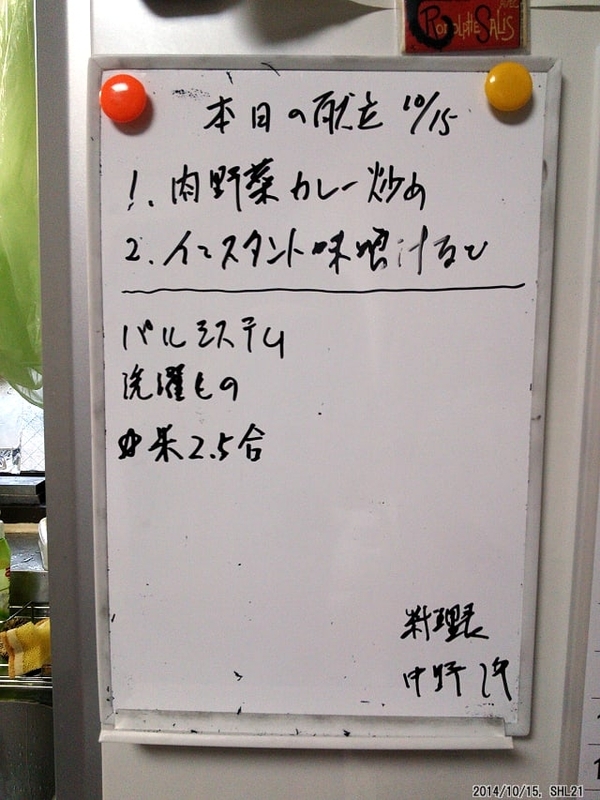 Rodolphe Salis
本日の献立 10/15
1. 肉野菜カレー炒め
2. インスタント味噌汁など
パルシステム
洗濯もの
お米2.5合
料理長
中野
2014/10/15, SHL21